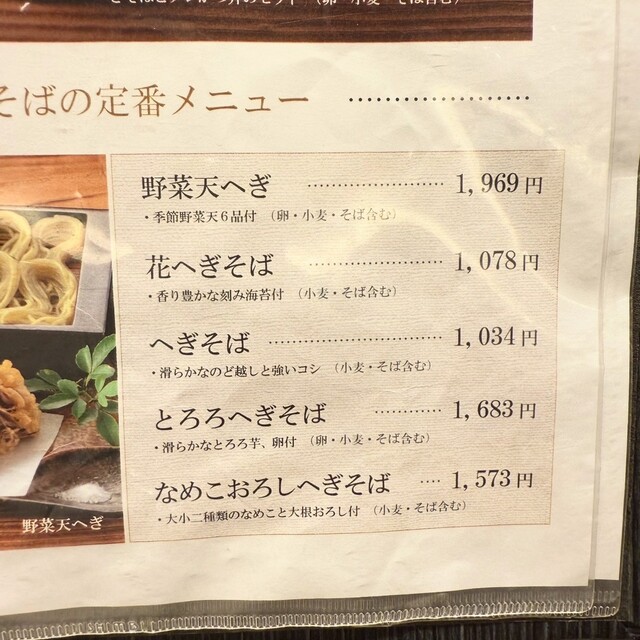 (卵・小麦・そば含む)
そばの定番メニュー
野菜天へぎ ........................ 1,969円
・季節野菜天6品付 (卵・小麦・そば含む)
花へぎそば ........................ 1,078円
・香り豊かな刻み海苔付 (小麦・そば含む)
へぎそば ........................ 1,034円
・滑らかなのど越しと強いコシ (小麦・そば含む)
とろろへぎそば ............ 1,683円
・滑らかなとろろ芋、卵付 (卵・小麦・そば含む)
なめこおろしへぎそば .... 1,573円
・大小二種類のなめこと大根おろし付 (小麦・そば含む)
野菜天へぎ